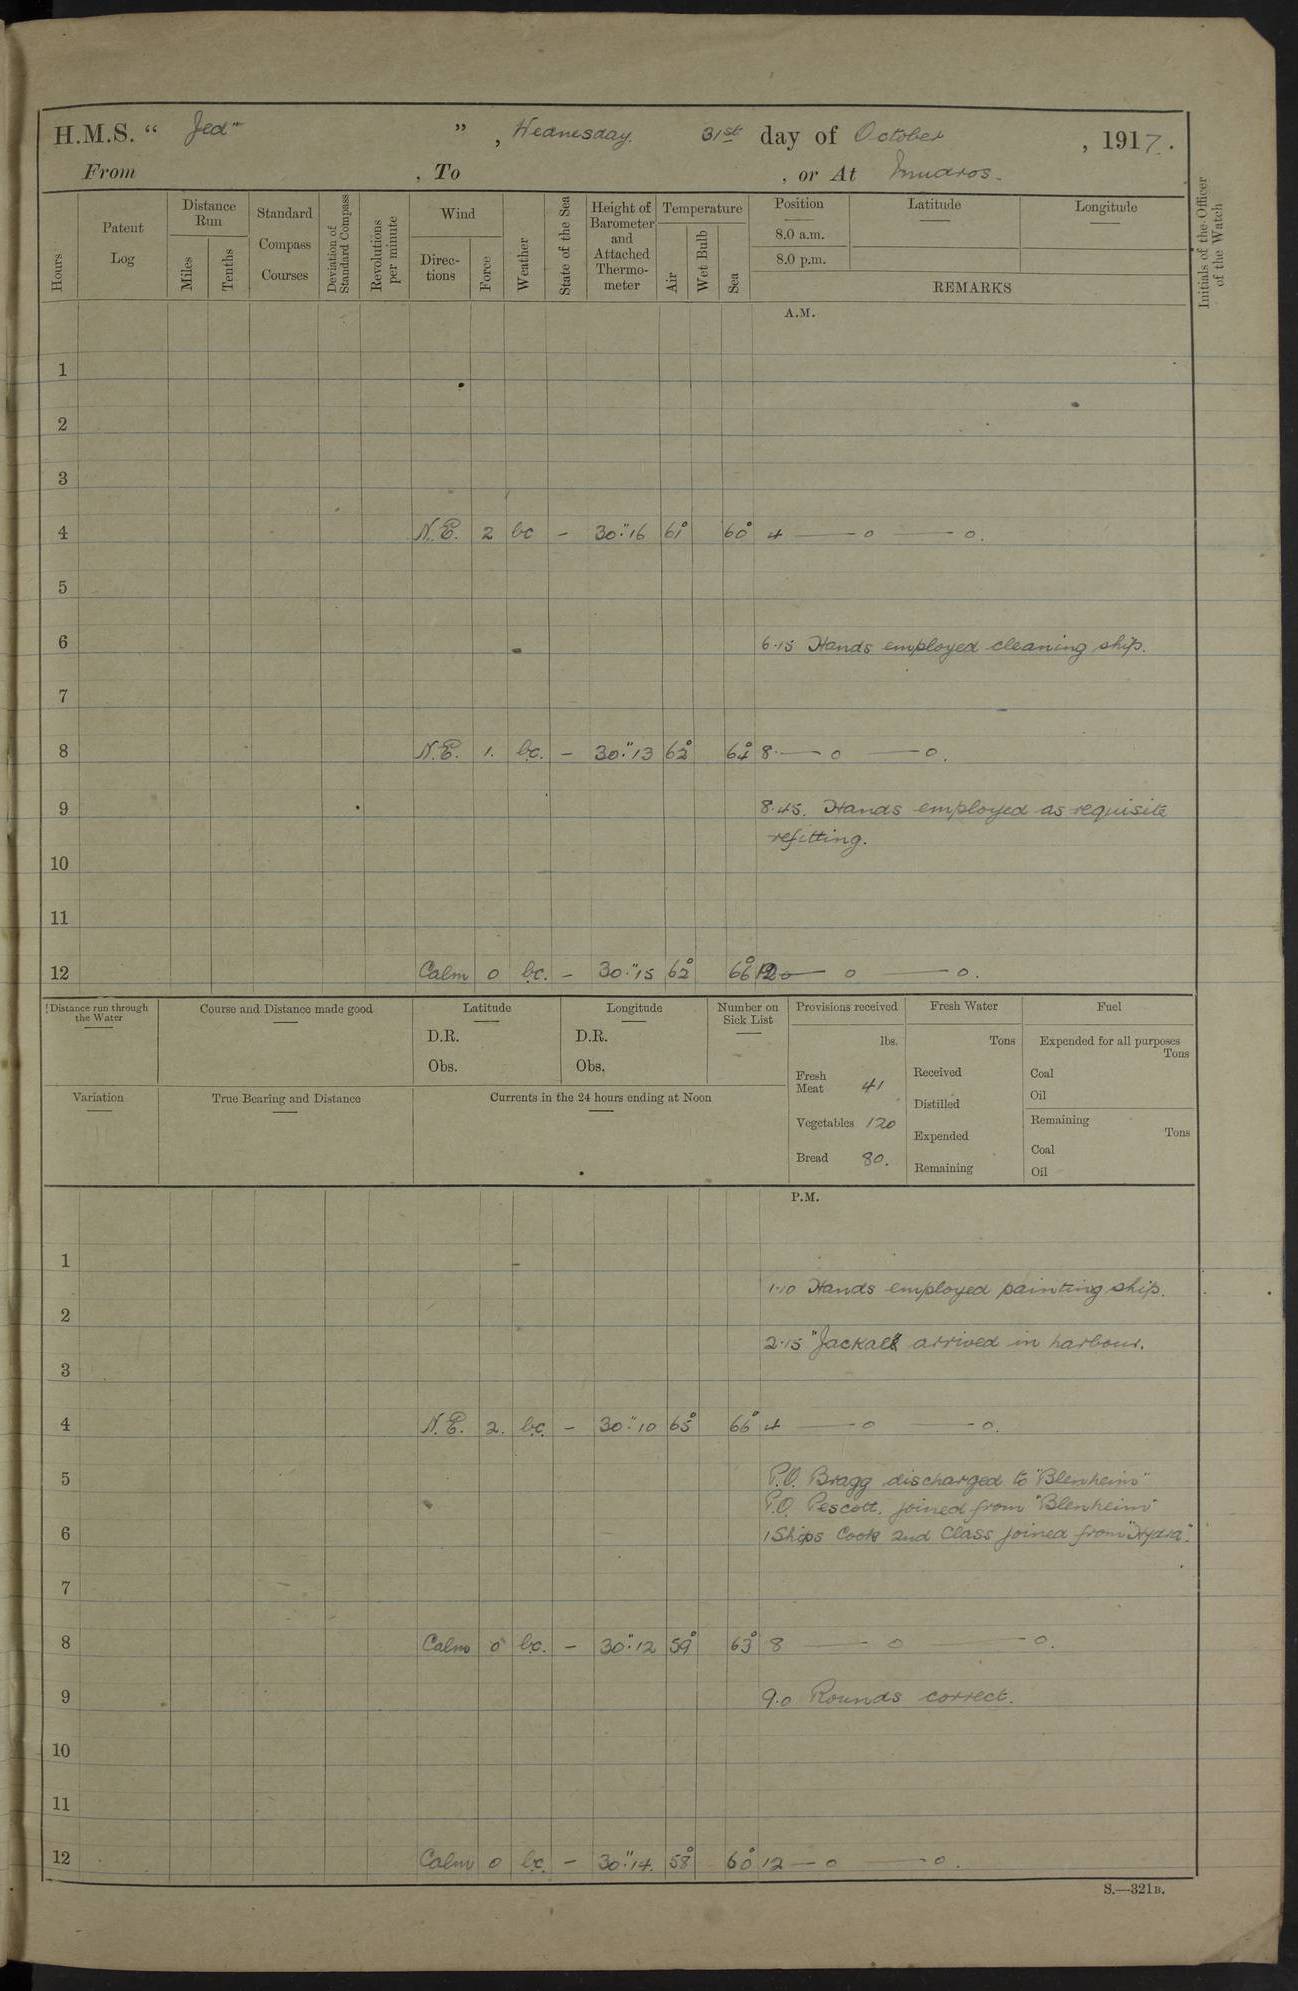 H.M.S. “ Jed ” , Wednesday. 31st day of October , 1917.
From , To , or At Mudros.
Hours
Patent Log
Distance Run
Miles
Tenths
Standard Compass Courses
Deviation of Standard Compass
Revolutions per minute
Wind
Directions
Force
Weather
State of the Sea
Height of Barometer and Attached Thermometer
Temperature
Air
Wet Bulb
Sea
Position
8.0 a.m.
8.0 p.m.
Latitude
Longitude
REMARKS
Initials of the Officer of the Watch
A.M.
1
2
3
4 N.E. 2 bc – 30."16 61° 60° 4 — o — o.
5
6 6.15 Hands employed cleaning ship.
7
8 N.E. 1. b.c. – 30."13 62° 64° 8. — o — o.
9 8.45. Hands employed as requisite
refitting.
10
11
12 Calm 0 b.c. – 30."15 62° 66° 12 — o — o.
Distance run through the Water
Course and Distance made good
Latitude
D.R.
Obs.
Longitude
D.R.
Obs.
Number on Sick List
Provisions received
lbs.
Fresh Meat 41
Vegetables 120
Bread 80.
Fresh Water
Tons
Received
Distilled
Expended
Remaining
Fuel
Expended for all purposes
Tons
Coal
Oil
Remaining
Tons
Coal
Oil
Variation
True Bearing and Distance
Currents in the 24 hours ending at Noon
P.M.
1
1.10 Hands employed painting ship.
2
2.15 "Jackal" arrived in harbour.
3
4 N.E. 2. b.c. – 30."10 65° 66° 4 — o — o.
5 P.O. Bragg discharged to "Blenheim"
P.O. Pescott. joined from "Blenheim"
6 1 Ships Cook 2nd Class joined from "Hydra".
7
8 Calm 0 b.c. – 30."12 59° 63° 8 — o — o.
9 9.0 Rounds correct.
10
11
12 Calm 0 b.c. – 30."14. 58° 60° 12 — o — o.
S.—321B.